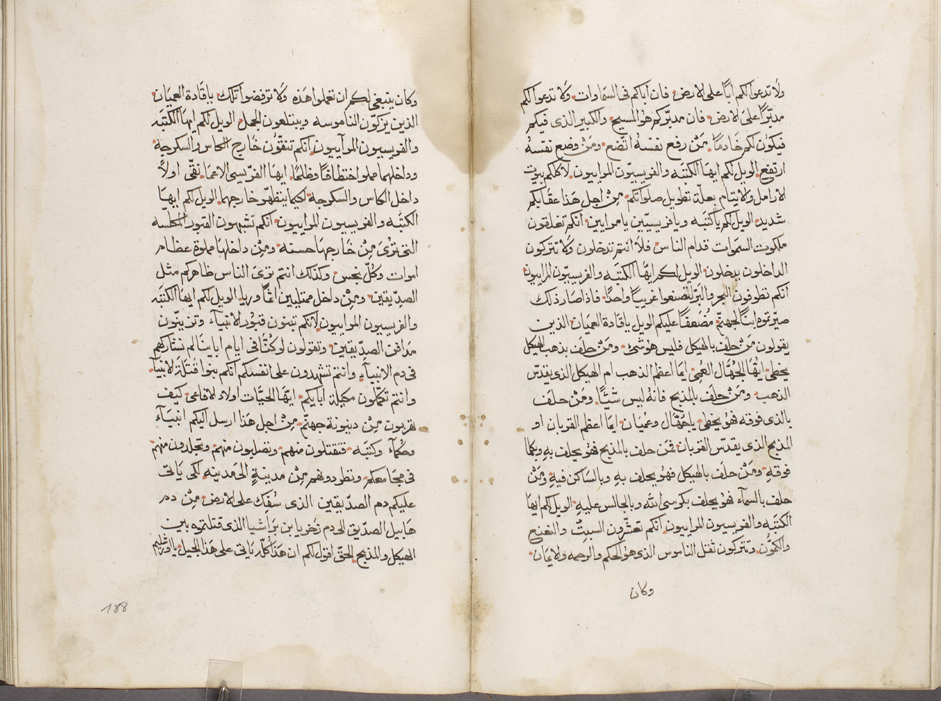 ولا تدعوا لكم ابًا على الارض فان اباكم فى السماوات ولا تدعوا لكم
مدبّرًا على الارض فان مدبّركم هو المسيح والكبير الذى فيكم
فيكون لكم خادمًا فمن رفع نفسه اتضع ومن وضع نفسه
ارتفع الويل لكم ايها الكتبه والفريسيون المراييون لاكلكم بيوت
الارامل والايتام بعلة تطويل صلواتكم من اجل هذا عقابكم
شديد الويل لكم يا كتبه ويا فريسيين يا مرايين انكم تغلقون
ملكوت السموات قدام الناس فلا انتم تدخلون ولا تتركون
الداخلون يدخلون الويل لكم ايها الكتبه والفريسيون المراييون
انكم تطوفون البحر والبر لتصنعوا غريبًا واحدًا فاذا صار ذلك
صيرتموه ابنًا لجهنم مضعفًا عليكم الويل لكم يا قادة العميان الذين
يقولون من حلف بالهيكل فليس هو شى ومن حلف بذهب الهيكل
يخطى ايها الجهال العمى ايما اعظم الذهب ام الهيكل الذى يقدس
الذهب ومن حلف بالمذبح فانه ليس شيًا ومن حلف
بالذى فوقه فهو يخطى يا جهال وعميان ايما اعظم القربان او
المذبح الذى يقدس القربان فمن حلف بالمذبح فهو يحلف به وبكلما
فوقه ومن حلف بالهيكل فهو يحلف به وبالساكن فيه ومن
حلف بالسمآء فهو يحلف بكرسى الله وبالجالس عليه الويل لكم ايها
الكتبه والفريسيون المراييون انكم تعشرون السبت والنعنع
والكمون وتتركون ثقل الناموس الذى هو الحكم والرحمه والايمان
وكان
وكان ينبغى لكم ان تعملوا هذه ولا ترفضوا تلك يا قادة العميان
الذين يزكّون الناموسه ويبتلعون الجمل الويل لكم ايها الكتبه
والفريسيون المراييون انكم تنقون خارج الكاس والسكرجة
وداخلهما مملوا اختطافًا وظلمًا ايها الفريسى الاعمى نقى اولًا
داخل الكاس والسكرجه لكيما يتطهر خارجهما الويل لكم ايها
الكتبه والفريسيون المراييون انكم تشبهون القبور المكلسه
التى ترى من خارجها حسنه ومن داخلها مملوة عظام
اموات وكل نجس وكذلك انتم ترى الناس ظاهركم مثل
الصديقين ومن داخل ممتليين اثمًا وريا الويل لكم ايها الكتبه
والفريسيون المراييون لانكم تبنون قبور الانبيآء وتزينون
مدافن الصديقين وتقولون لو كنا فى ايام اباينا لم نشاركهم
فى دم الانبيآء وانتم تشهدون على انفسكم انكم بنوا قتلة الانبيآء
وانتم تكملون مكيلة ابايكم ايها الحيات اولاد الافاعى كيف
تهربون من دينونة جهنم من اجل هذا ارسل اليكم انبيآء
وحكمآء وكتبه فتقتلون منهم وتصلبون منهم وتجلدون منهم
فى مجامعكم وتطردونهم من مدينةٍ الى مدينه لكى ياتى
عليكم دم الصديقين الذى سُفك على الارض من دم
هابيل الصديق الى دم زخريا بن براشيا الذى قتلتموه بين
الهيكل والمذبح الحق اقول لكم ان هذا كله ياتى على هذا الجيل يا اورشليم
188